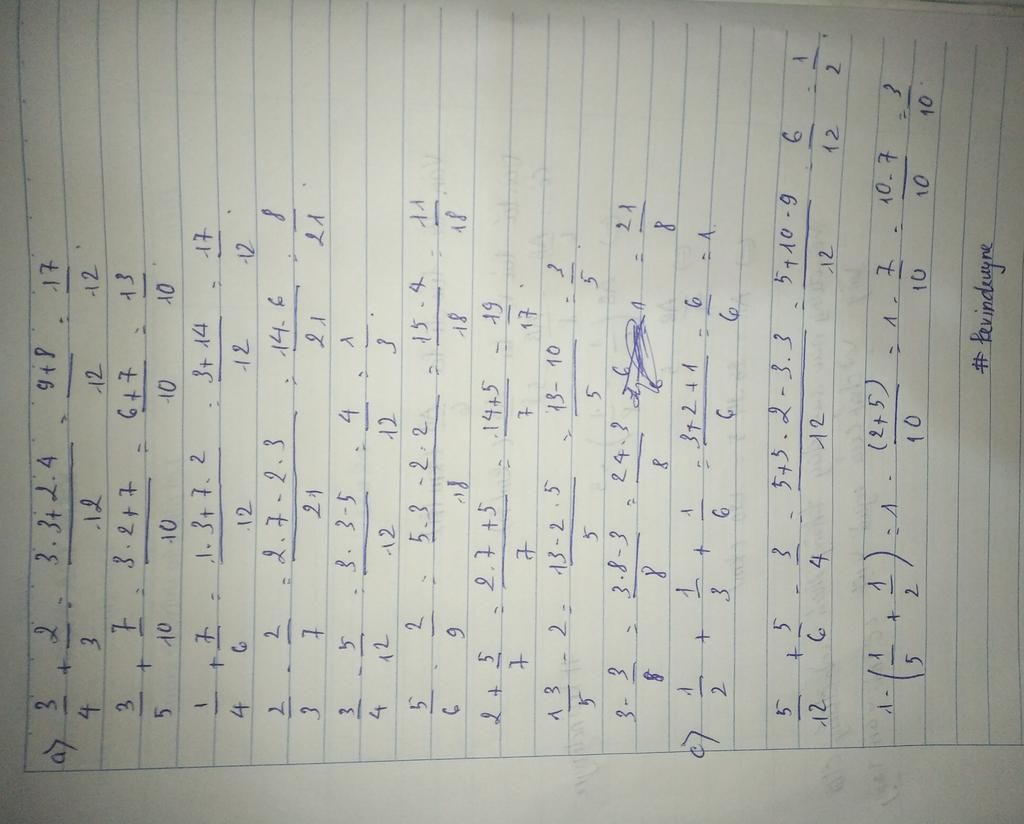 a) 3/4 + 2/3 = 3.3+2.4/12 = 9+8/12 = 17/12.
3/5 + 7/10 = 3.2+7/10 = 6+7/10 = 13/10
1/4 + 7/6 = 1.3+7.2/12 = 3+14/12 = 17/12.
2/3 - 2/7 = 2.7-2.3/21 = 14-6/21 = 8/21.
3/4 - 5/12 = 3.3-5/12 = 4/12 = 1/3.
5/6 - 2/9 = 5.3-2.2/18 = 15-4/18 = 11/18
2 + 5/7 = 2.7+5/7 = 14+5/7 = 19/17.
13/5 - 2 = 13-2.5/5 = 13-10/5 = 3/5
3 - 3/8 = 3.8-3/8 = 24-3/8 = 21/8
c) 1/2 + 1/3 + 1/6 = 3+2+1/6 = 6/6 = 1.
5/12 + 5/6 - 3/4 = 5+5.2-3.3/12 = 5+10-9/12 = 6/12 = 1/2.
1-(1/5 + 1/2) = 1 - (2+5)/10 = 1 - 7/10 = 10-7/10 = 3/10.